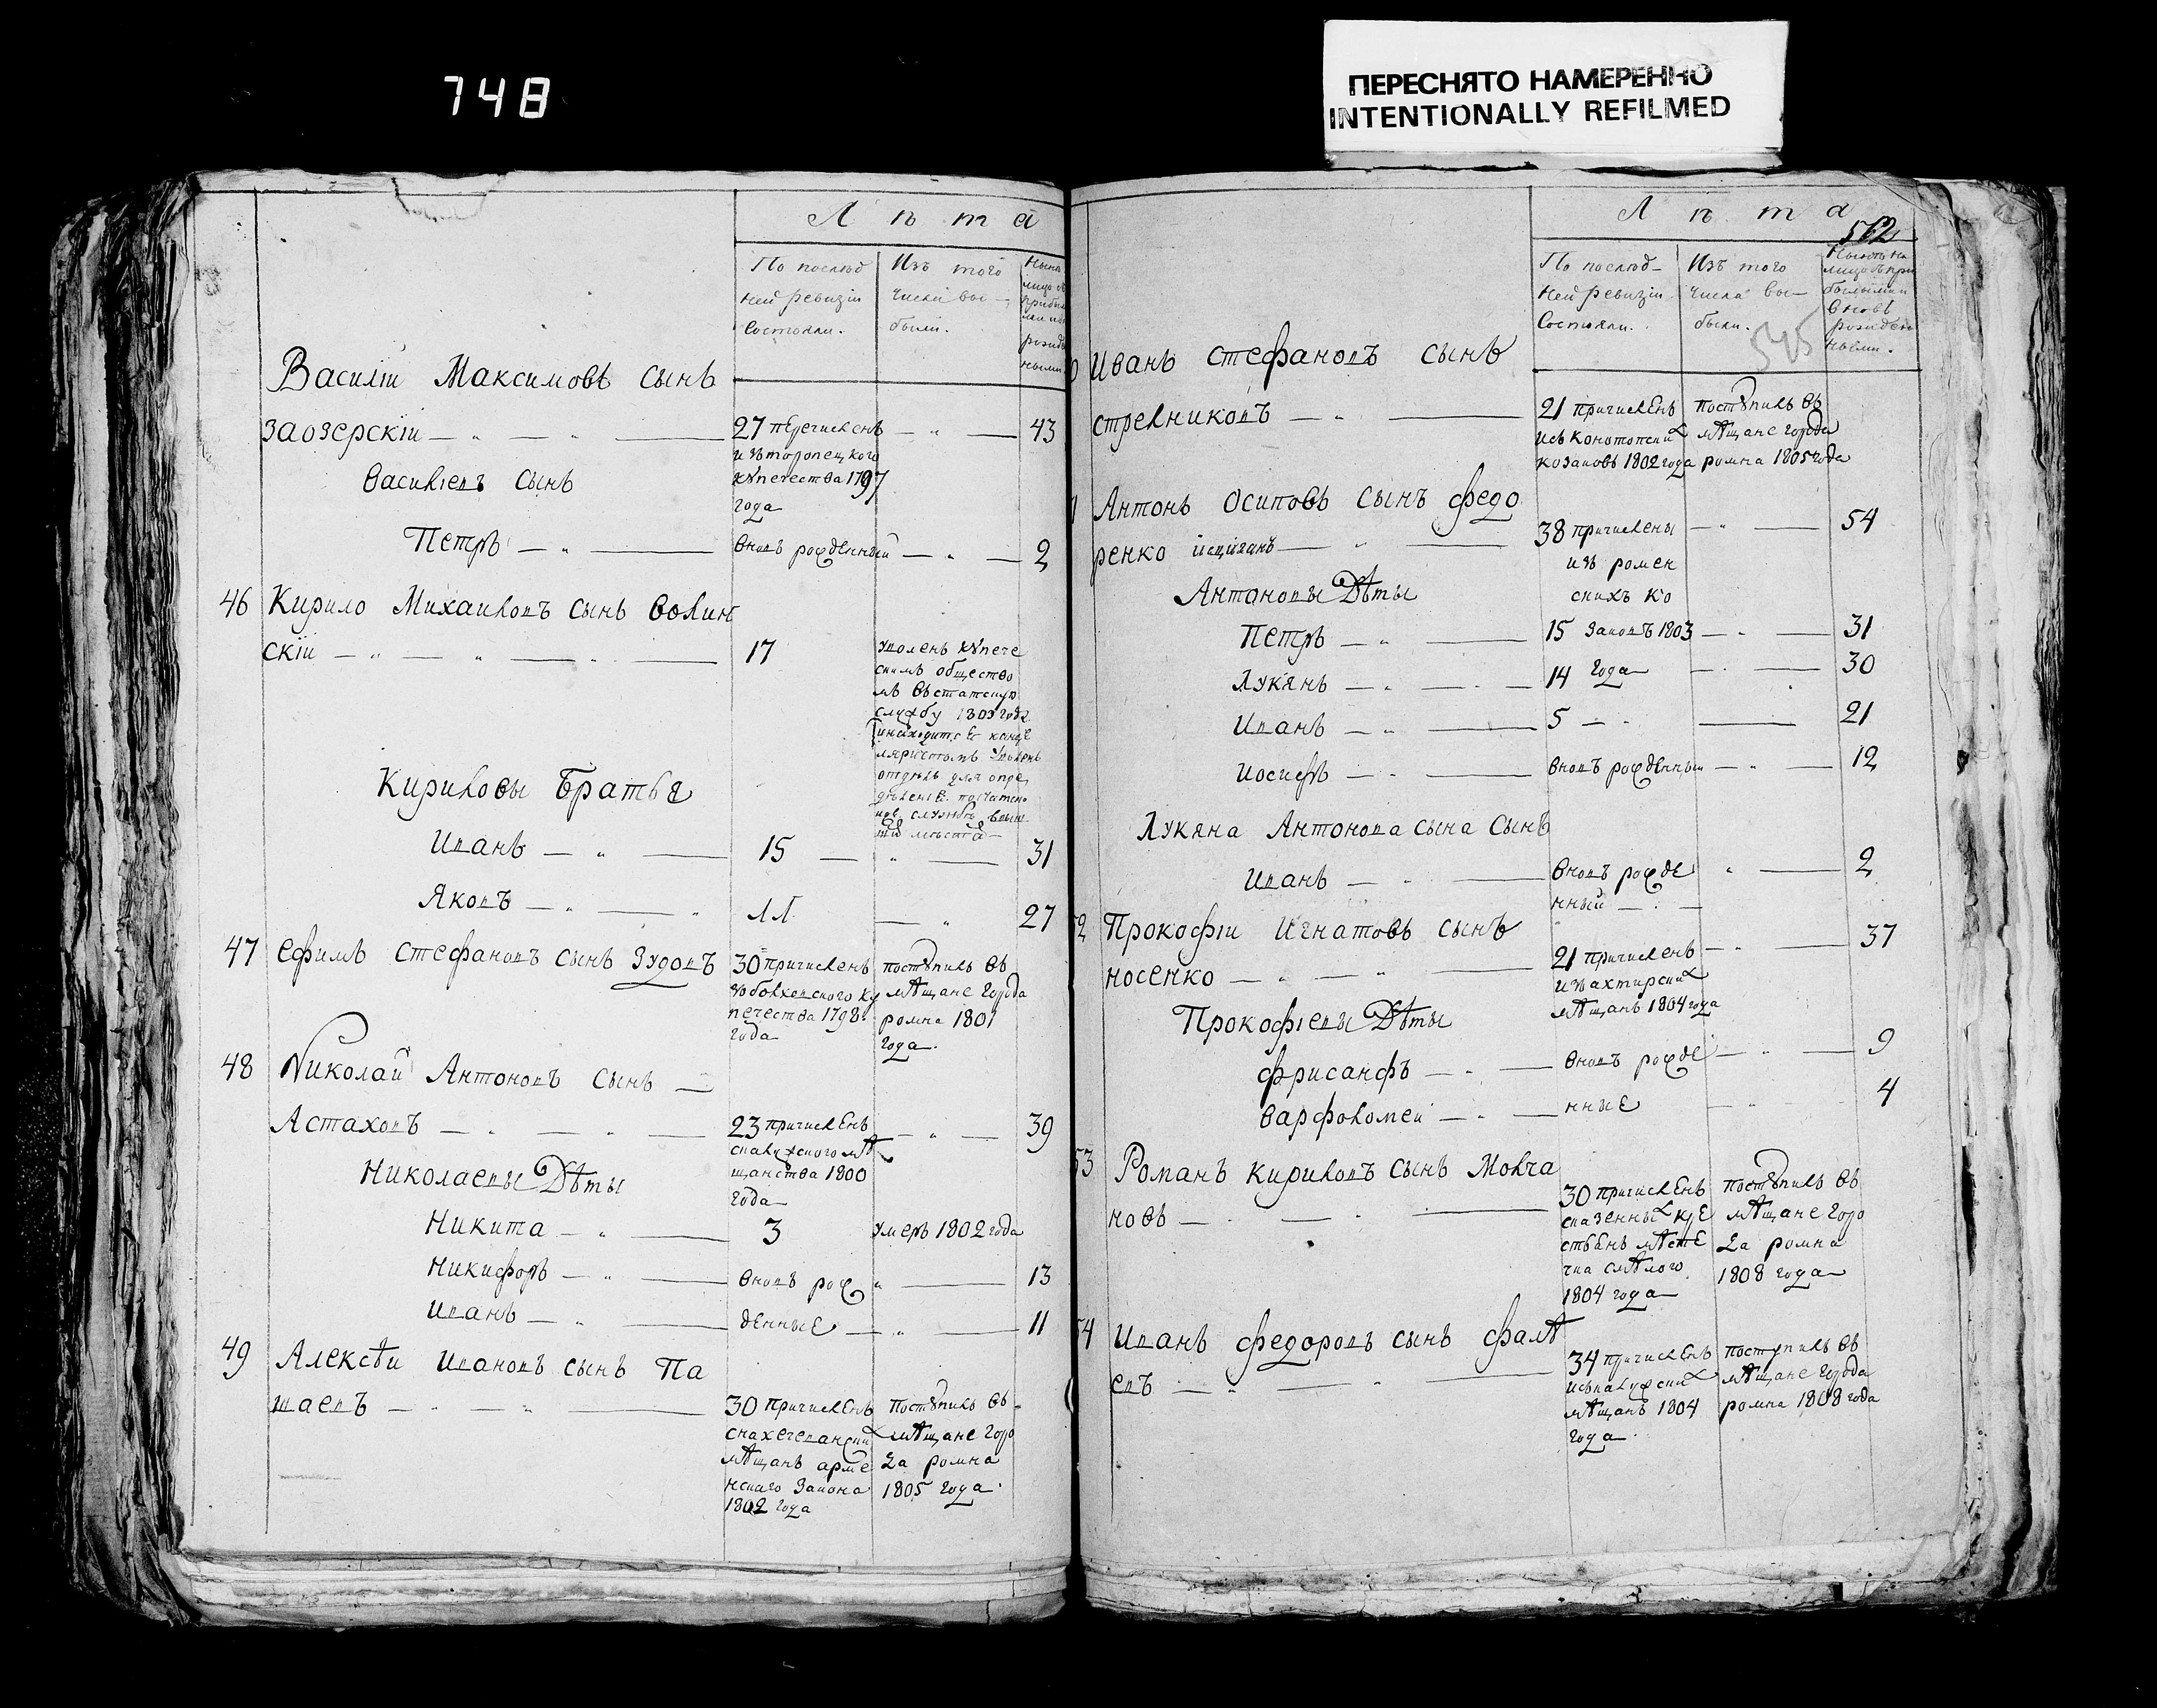 748
ПЕРЕСНЯТО НАМЕРЕННО
INTENTIONALLY REFILMED
Лѣта
По послѣд
ней ревизіи
состояли.
Изъ того
числа вы-
были.
Василіи Максимовъ сынъ
Заозерскіи
27 перечисленъ
изъ торопецкого
купечества 1797
года
43
Василіевъ сынъ
Петръ
вновь рожденный
2
46 Кирило Михаиловъ сынъ Волин
скіи
17
уволенъ купече
скимъ общество
мъ въ статскую
службу 1809 года
Кириловы Братья
Иванъ
15
31
Яковъ
11
27
47 Ефимъ Стефановъ сынъ Зудовъ
30 причисленъ
болховского ку
печества 1798
года
поступилъ въ
мѣщане города
ромна 1801
года.
48 Николаи Антоновъ сынъ
Астаховъ
23 причисленъ
скалужского мѣ
щанства 1800
года
39
Николаевы Дѣты
Никита
3
умеръ 1802 года
Никифоръ
вновъ рож
13
Иванъ
денные
11
49 Алексѣи Ивановъ сынъ Па
шаевъ
30 причисленъ
снахечевански
мѣщанъ арме
нскаго закона
1802 года
поступилъ въ
мѣщане горо
да ромна
1805 года.
Лѣта
562
545
По послѣд-
ней ревизіи
состояли.
Изъ того
числа вы-
были.
Нынѣ на
лицо съ при
былыми и
вновь
рожден
ными.
Иванъ Стефановъ сынъ
стрелниковъ
21 причисленъ
исъ конотопских
козаковъ 1802 года
поступилъ въ
мѣщане города
ромна 1805 года
Антонъ Осиповъ сынъ Федо
ренко
38 причислены
изъ ромен
скихъ ко
54
Антоновы Дѣты
Петръ
15 заковъ 1803
31
Лукянъ
14 года
30
Иванъ
5
21
Иосифъ
вновъ рожденный
12
Лукяна Антонова сына сынъ
Иванъ
вновъ рожде
нный
2
Прокофіи Игнатовъ сынъ
носенко
21 причисленъ
изъ ахтирских
мѣщанъ 1804 года
37
Прокофіевы Дѣты
Фрисанфъ
вновъ рожде
9
Варфоломеи
нные
4
53 Романъ Кириловъ сынъ Молча
новъ
30 причисленъ
сказенных кре
стьянъ мѣсте
чка смѣлого
1804 года
поступилъ въ
мѣщане горо
да ромна
1808 года
54 Иванъ Федоровъ сынъ Фалѣ
евъ
34 причисленъ
искалужских
мѣщанъ 1804
года.
поступилъ въ
мѣщане города
ромна 1808 года